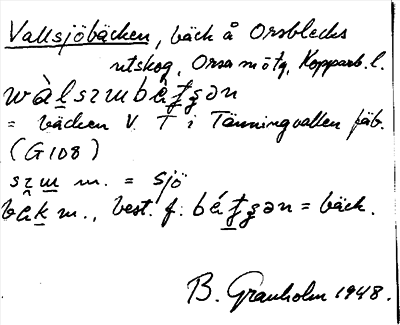 Vallsjöbäcken, bäck å Orsblecks
utskog, Orsa m ö tg, Kopparb. l.
= bäcken V. T i Tänningvallen fäb.
(G108)
m. = sjö
m., best. f. = bäck.
B. Granholm 1948.